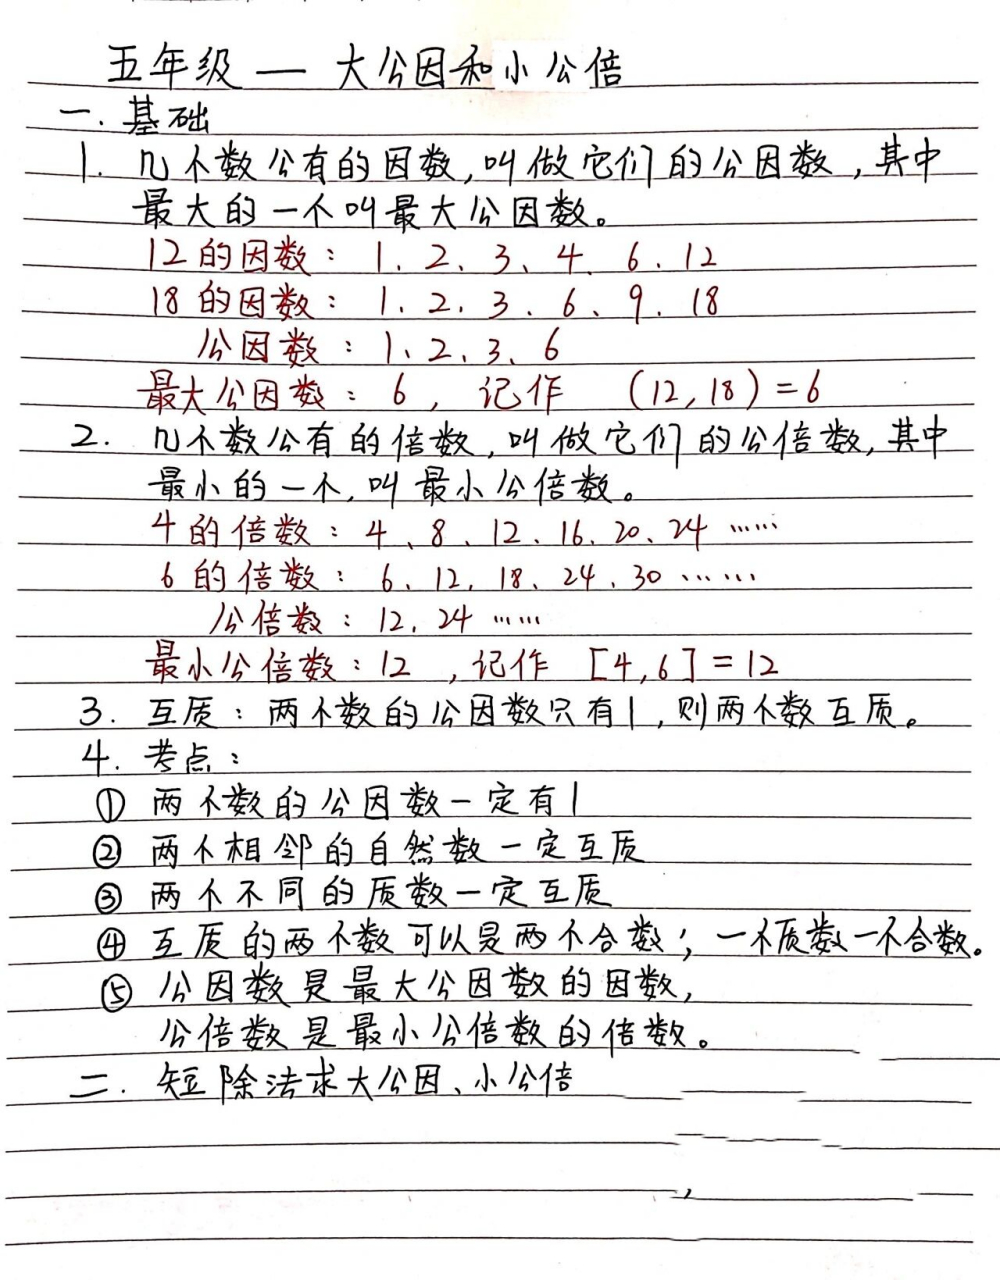 五年级 — 大公因和小公倍
一. 基础
1. 几个数公有的因数,叫做它们的公因数,其中
最大的一个叫最大公因数。
12的因数: 1、2、3、4、6、12
18的因数: 1、2、3、6、9、18
公因数: 1、2、3、6
最大公因数: 6, 记作 (12,18)=6
2. 几个数公有的倍数,叫做它们的公倍数,其中
最小的一个,叫最小公倍数。
4的倍数: 4、8、12、16、20、24 ……
6的倍数: 6、12、18、24、30 ……
公倍数: 12、24 ……
最小公倍数: 12 ,记作 [4,6]=12
3. 互质: 两个数的公因数只有1,则两个数互质。
4. 考点:
① 两个数的公因数一定有1
② 两个相邻的自然数一定互质
③ 两个不同的质数一定互质
④ 互质的两个数可以是两个合数; 一个质数一个合数。
⑤ 公因数是最大公因数的因数,
公倍数是最小公倍数的倍数。
二. 短除法求大公因、小公倍